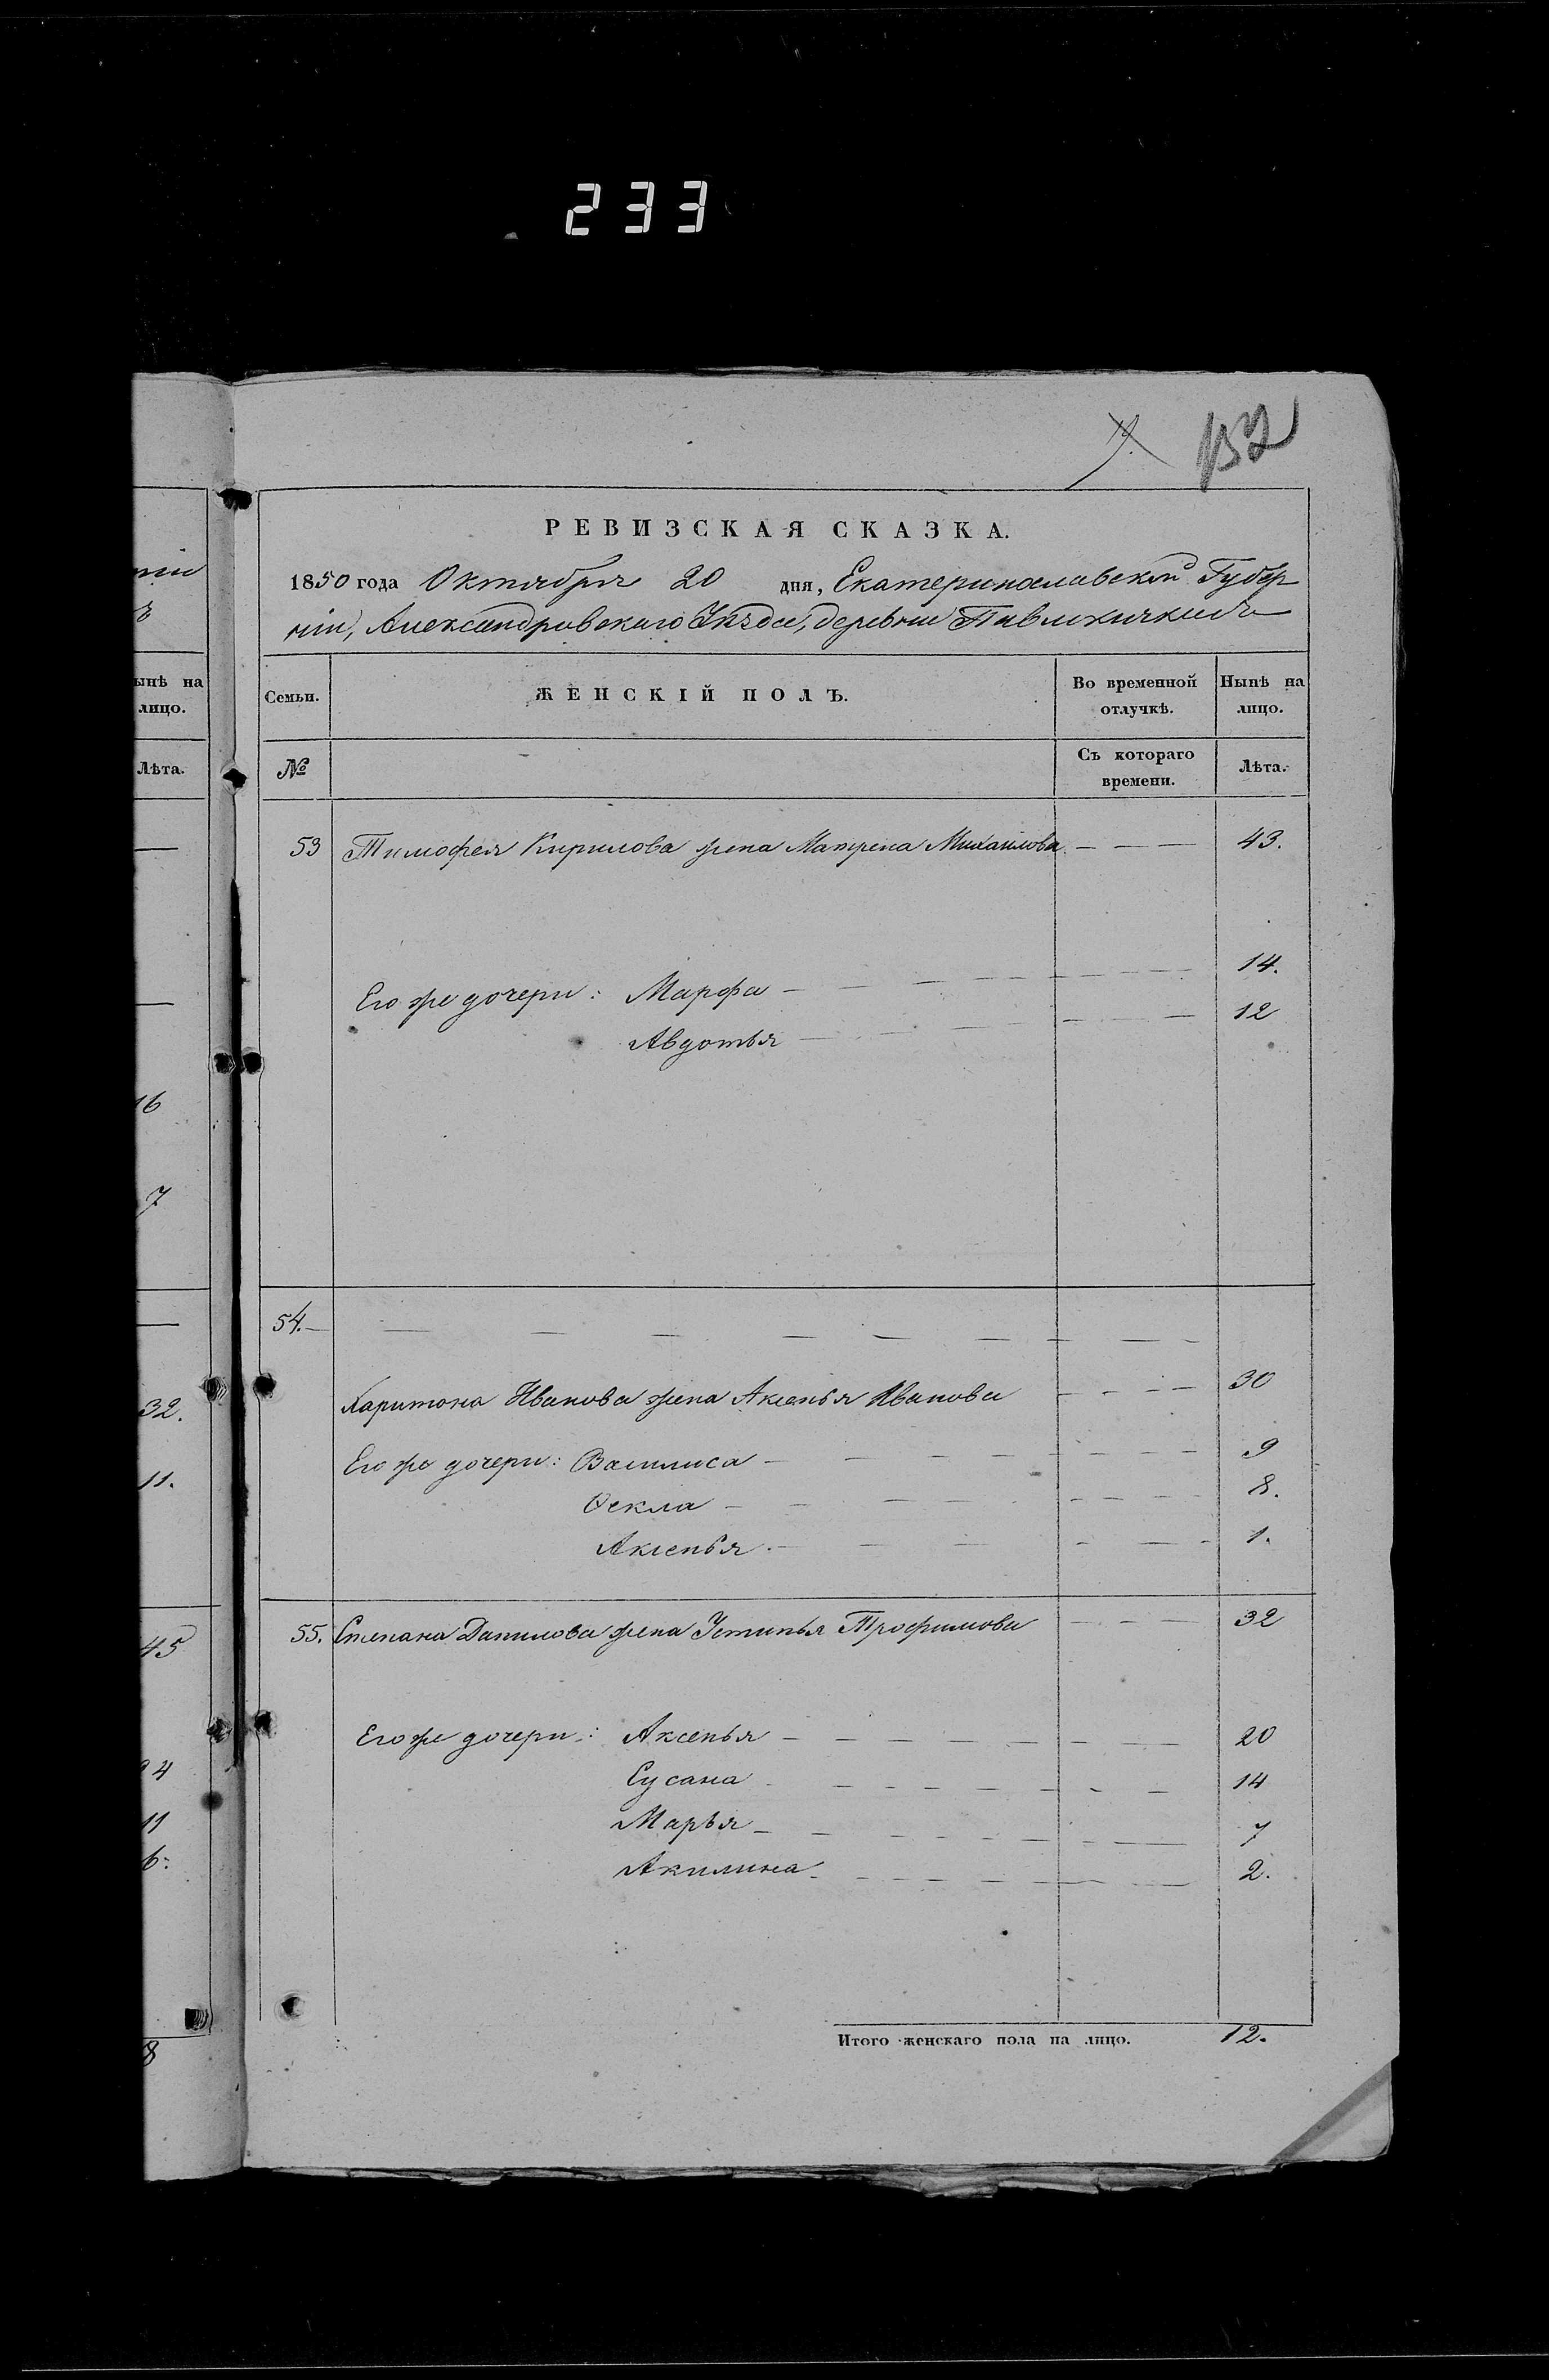 233
132
РЕВИЗСКАЯ СКАЗКА.
1850 года Октября 20 дня, Екатеринославской Губер
ніи, Александровскаго Уѣзда, деревни Павлокичкасъ
ынѣ на лицо.
Лѣта.
16
7
32.
11.
45
11
6.
8
Семьи. ЖЕНСКІЙ ПОЛЪ. Во временной отлучкѣ. Нынѣ на лицо.
№ Съ котораго времени. Лѣта.
53 Тимофея Кирилова жена Матрена Михаилова — — — 43.
Его же дочери: Марфа — — — 14.
Авдотья — — — 12
54. — — — — — — — —
Харитона Иванова жена Аксенья Иванова — — — 30
Его же дочери: Василиса — — — 9
Ѳекла — — — 8.
Аксенья. — — — 1.
55. Степана Данилова жена Устинья Трофимова — — — 32
Его же дочери: Аксенья — — — 20
Сусана — — — 14
Марья — — — 7
Акилина — — — 2.
Итого женскаго пола на лицо. 12.